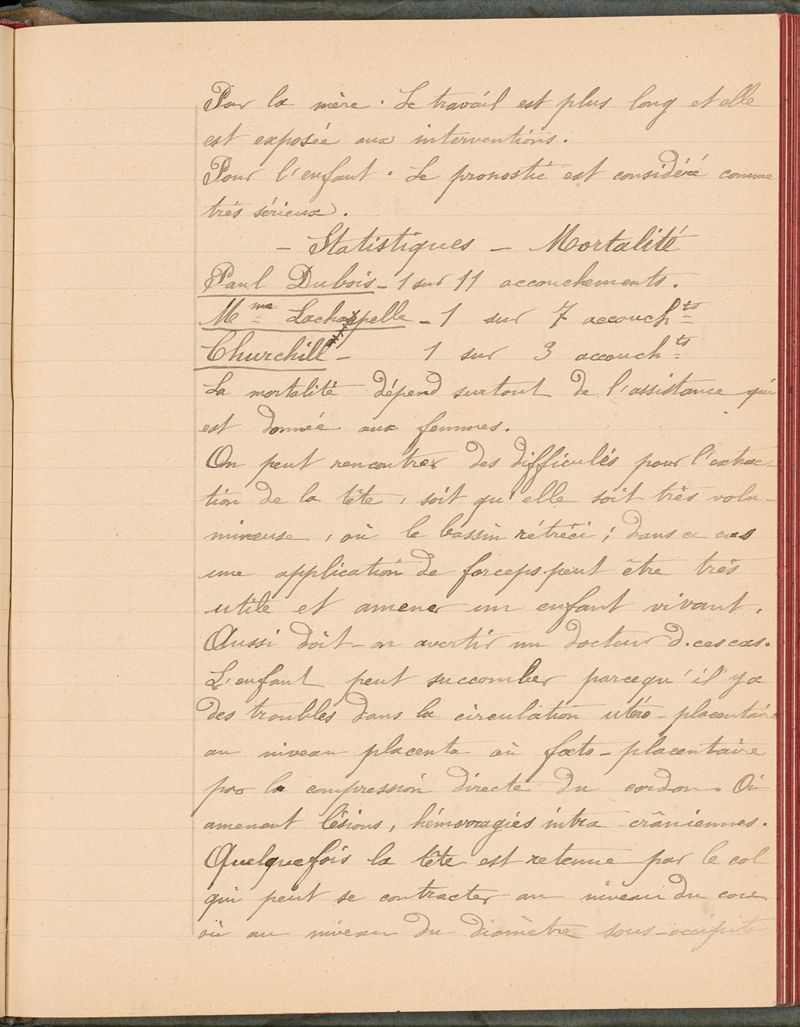 Pour la mère. Le travail est plus long et elle
est exposée aux interventions.
Pour l'enfant. Le pronostic est considéré comme
très sérieux.
- Statistiques - Mortalité
Paul Dubois - 1 sur 11 accouchements.
Mme Lachapelle - 1 sur 7 accouchts
Churchill - 1 sur 3 accouchts
La mortalité dépend surtout de l'assistance qui
est donnée aux femmes.
On peut rencontrer des difficulés pour l'extrac-
tion de la tête, soit qu'elle soit très volu-
mineuse, où le bassin rétréci; dans ce cas
une application de forceps peut être très
utile et amener un enfant vivant.
Aussi doit-on avertir un docteur d. ces cas.
L'enfant peut succomber parcequ'il y a
des troubles dans la circulation utéro-placentaire
au niveau placenta où fœto-placentaire
par la compression directe du cordon. Où
amenant lésions, hémorragies intra crâniennes.
Quelquefois la tête est retenue par le col
qui peut se contracter au niveau du cou
où au niveau du diamètre sous-occipito